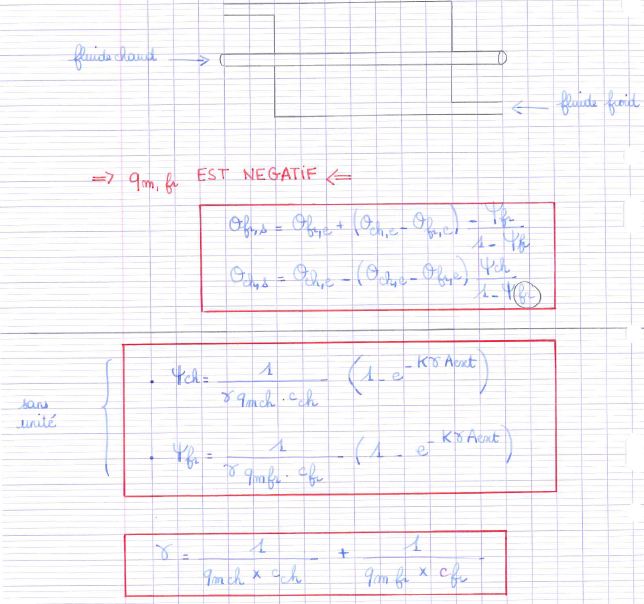 fluide chaud →
← fluide froid
=> qm, fr EST NEGATIF <=
θfr,s = θfr,e + (θch,e - θfr,e) ψfr / (1 - ψfr)
θch,s = θch,e - (θch,e - θfr,e) ψch / (1 - ψfr)
sans unité
• ψch = 1 / (γ qmch · cch) (1 - e^(-KγAext))
• ψfr = 1 / (γ qmfr · cfr) (1 - e^(-KγAext))
γ = 1 / (qmch × cch) + 1 / (qmfr × cfr)